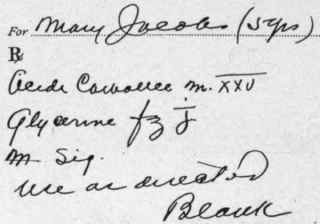 For Mary Jacobs (5 yrs)
℞
Acidi Carbolici m. xxv
Glycerine f℥ j
M. Sig.
Use as directed
Blank